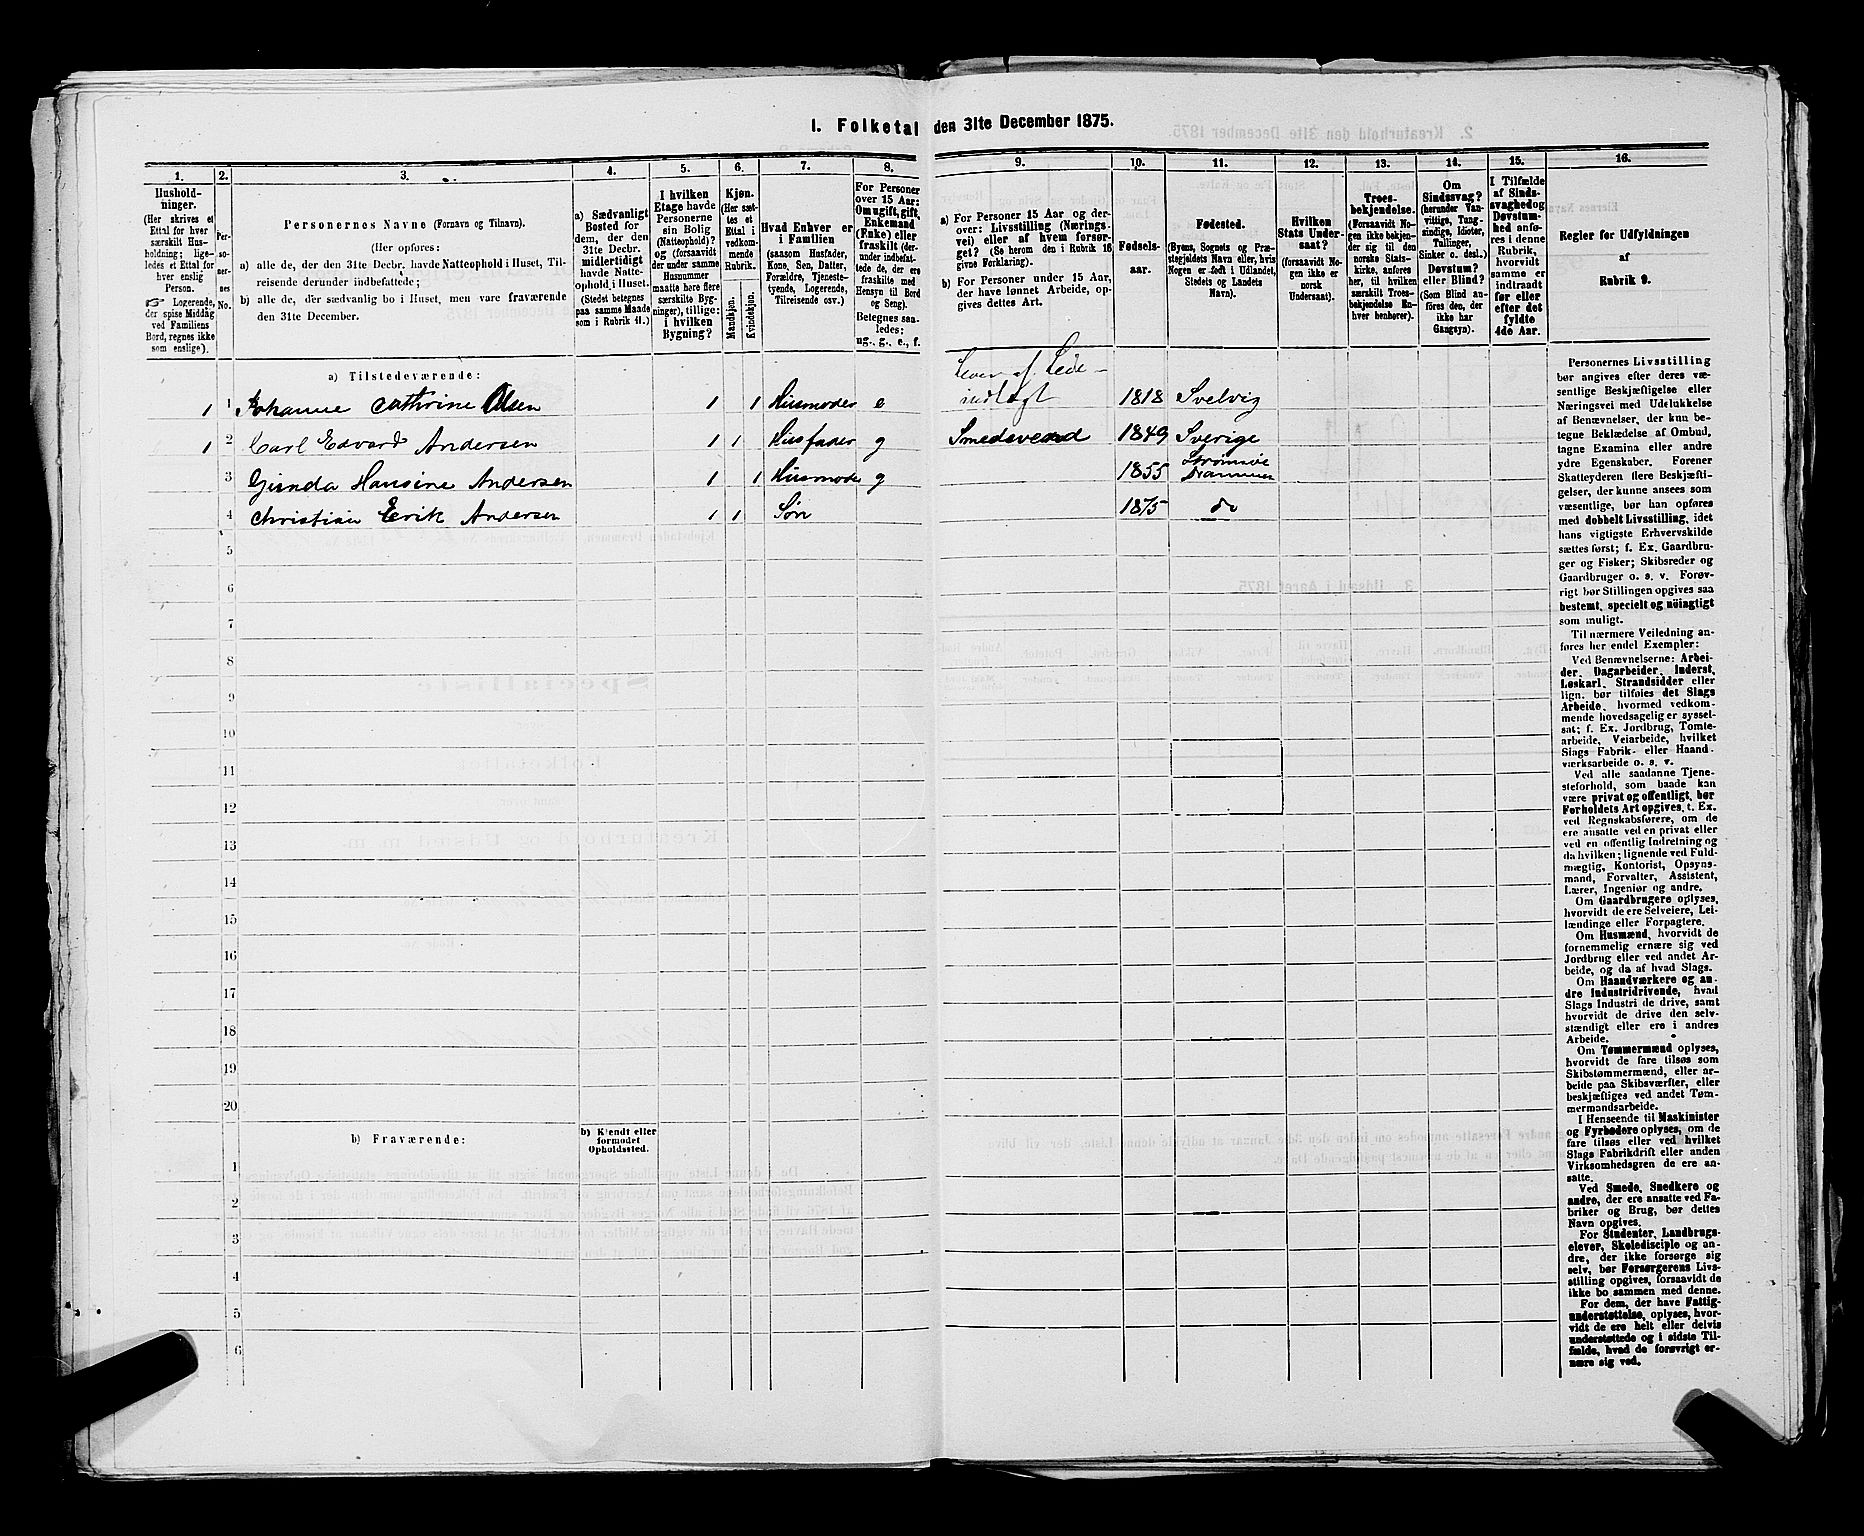 I. Folketal den 31te December 1875.
1. 2. 3. 4. 5. 6. 7. 8. 9. 10. 11. 12. 13. 14. 15. 16.
Hushold-
ninger.
(Her skrives et
Ettal for hver
særskilt Hus-
holdning; lige-
ledes et Ettal for
hver enslig
Person.
☞ Logerende,
der spise Middag
ved Familiens
Bord, regnes ikke
som enslige).
Per-
so-
ner-
nes
No.
Personernes Navne (Fornavn og Tilnavn).
(Her opføres:
a) alle de, der den 31te Decbr. havde Natteophold i Huset, Til-
reisende derunder indbefattede;
b) alle de, der sædvanlig bo i Huset, men vare fraværende
den 31te December.
a) Sædvanligt
Bosted for
dem, der den
31te Decbr.
midlertidigt
havde Natte-
ophold i Huset.
(Stedet betegnes
paa samme Maade
som i Rubrik 11.)
I hvilken
Etage havde
Personerne
sin Bolig
(Natteophold)?
(forsaavidt
der under samme
Husnummer
maatte høre flere
særskilte Byg-
ninger), tillige:
i hvilken
Bygning?
Kjøn.
(Her sæt-
tes et
Ettal i
vedkom-
mende
Rubrik.
Mandkjøn.
Kvindekjøn.
Hvad Enhver er
i Familien
(saasom Husfader,
Kone, Søn, Datter,
Forældre, Tjeneste-
tyende, Logerende,
Tilreisende osv.)
For Personer
over 15 Aar:
Om ugift, gift,
Enkemand
(Enke) eller
fraskilt (der-
under indbefat-
tede de, der ere
fraskilte med
Hensyn til Bord
og Seng).
Betegnes saa-
ledes:
ug., g., e., f.
a) For Personer 15 Aar og der-
over: Livsstilling (Nærings-
vei) eller af hvem forsør-
get? (Se herom den i Rubrik 16
givne Forklaring).
b) For Personer under 15 Aar,
der have lønnet Arbeide, op-
gives dettes Art.
Fødsels-
aar.
Fødested.
(Byens, Sognets og Præ-
stegjeldets Navn eller, hvis
Nogen er født i Udlandet,
Stedets og Landets
Navn).
Hvilken
Stats Under-
saat?
(forsaavidt No-
gen ikke er
norsk
Undersaat).
Troes-
bekjendelse.
(Forsaavidt No-
gen ikke bekjen-
der sig til den
norske Stats-
kirke, anføres
her, til hvilken
særskilt Troes-
bekjendelse En-
hver henhører).
Om
Sindssvag?
(herunder Van-
vittige, Tung-
sindige, Idioter,
Tullinger,
Sinker o. desl.)
Døvstum?
eller Blind?
(Som Blind an-
føres den, der
ikke har
Gangsyn).
I Tilfælde
af Sinds-
svaghed og
Døvstum-
hed anfø-
res i denne
Rubrik,
hvorvidt
samme er
indtraadt
før eller
efter det
fyldte
4de Aar.
Regler for Udfyldningen
af
Rubrik 9.
a) Tilstedeværende:
Lever af Føde-
1 1 Johanne Cathrine Olsen 1 1 Husmoder e indlagt 1818 Svelvig
1 2 Carl Edvard Andersen 1 1 Husfader g Smedsvend 1849 Sverige
3 Gunda Hansine Andersen 1 1 Husmoder g 1855 Strømsøe Drammen
4 Christian Erik Andersen 1 1 Søn 1875 do
5
6
7
8
9
10
11
12
13
14
15
16
17
18
19
20
b) Fraværende:
b) Kjendt eller
formodet
Opholdssted.
1
2
3
4
5
6
Personernes Livsstilling
bør angives efter deres væ-
sentlige Beskjæftigelse eller
Næringsvei med Udelukkelse
af Benævnelser, der kun be-
tegne Beklædelse af Ombud,
tagne Examina eller andre
ydre Egenskaber. Forener
Skatteyderen flere Beskjæfti-
gelser, der kunne ansees som
væsentlige, bør han opføres
med dobbelt Livsstilling, idet
hans vigtigste Erhvervskilde
sættes først; f. Ex. Gaardbru-
ger og Fisker; Skibsreder og
Gaardbruger o. s. v. Forøv-
rigt bør Stillingen opgives saa
bestemt, specielt og nöiagtigt
som muligt.
Til nærmere Veiledning an-
føres her endel Exempler:
Ved Benævnelserne: Arbei-
der, Dagarbeider, Inderst,
Løskarl, Strandsidder eller
lign. bør tilføies det Slags
Arbeide, hvormed vedkom-
mende hovedsagelig er syssel-
sat; f. Ex. Jordbrug, Tomte-
arbeide, Veiarbeide, hvilket
Slags Fabrik- eller Haand-
værksarbeide o. s. v.
Ved alle saadanne Tjene-
steforhold, som baade kan
være privat og offentligt, bør
Forholdets Art opgives, t. Ex.
ved Regnskabsførere, om de
ere ansatte ved en privat eller
ved en offentlig Indretning og
da hvilken; lignende ved Fuld-
mægtig, Kontorist, Opsyns-
mand, Forvalter, Assistent,
Lærer, Ingeniør og andre.
Om Gaardbrugere oplyses,
hvorvidt de ere Selveiere, Lei-
lændinge eller Forpagtere.
Om Husmænd, hvorvidt de
fornemmelig ernære sig ved
Jordbrug eller ved andet Ar-
beide, og da af hvad Slags.
Om Haandværkere og an-
dre Industridrivende, hvad
Slags Industri de drive, samt
hvorvidt de drive den selv-
stændigt eller ere i andres
Arbeide.
Om Tømmermænd oplyses,
hvorvidt de fare tilsøs som
Skibstømmermænd, eller ar-
beide paa Skibsværfter, eller
beskjæftiges ved andet Tøm-
mermandsarbeide.
I Henseende til Maskinister
og Fyrbødere oplyses, om de
fare tilsøs eller ved hvilket
Slags Fabrikdrift eller anden
Virksomhedsgren de ere an-
satte.
Ved Smede, Snedkere og
andre, der ere ansatte ved Fa-
briker og Brug, bør dettes
Navn opgives.
For Studenter, Landbrugs-
elever, Skoledisciple og an-
dre, der ikke forsørge sig
selv, bør Forsørgerens Livs-
stilling opgives, forsaavidt de
ikke bo sammen med denne.
For dem, der have Fattig-
understøttelse, oplyses, hvor-
vidt de ere helt eller delvis
understøttede og i sidste Til-
fælde, hvad de forøvrigt er-
nære sig ved.